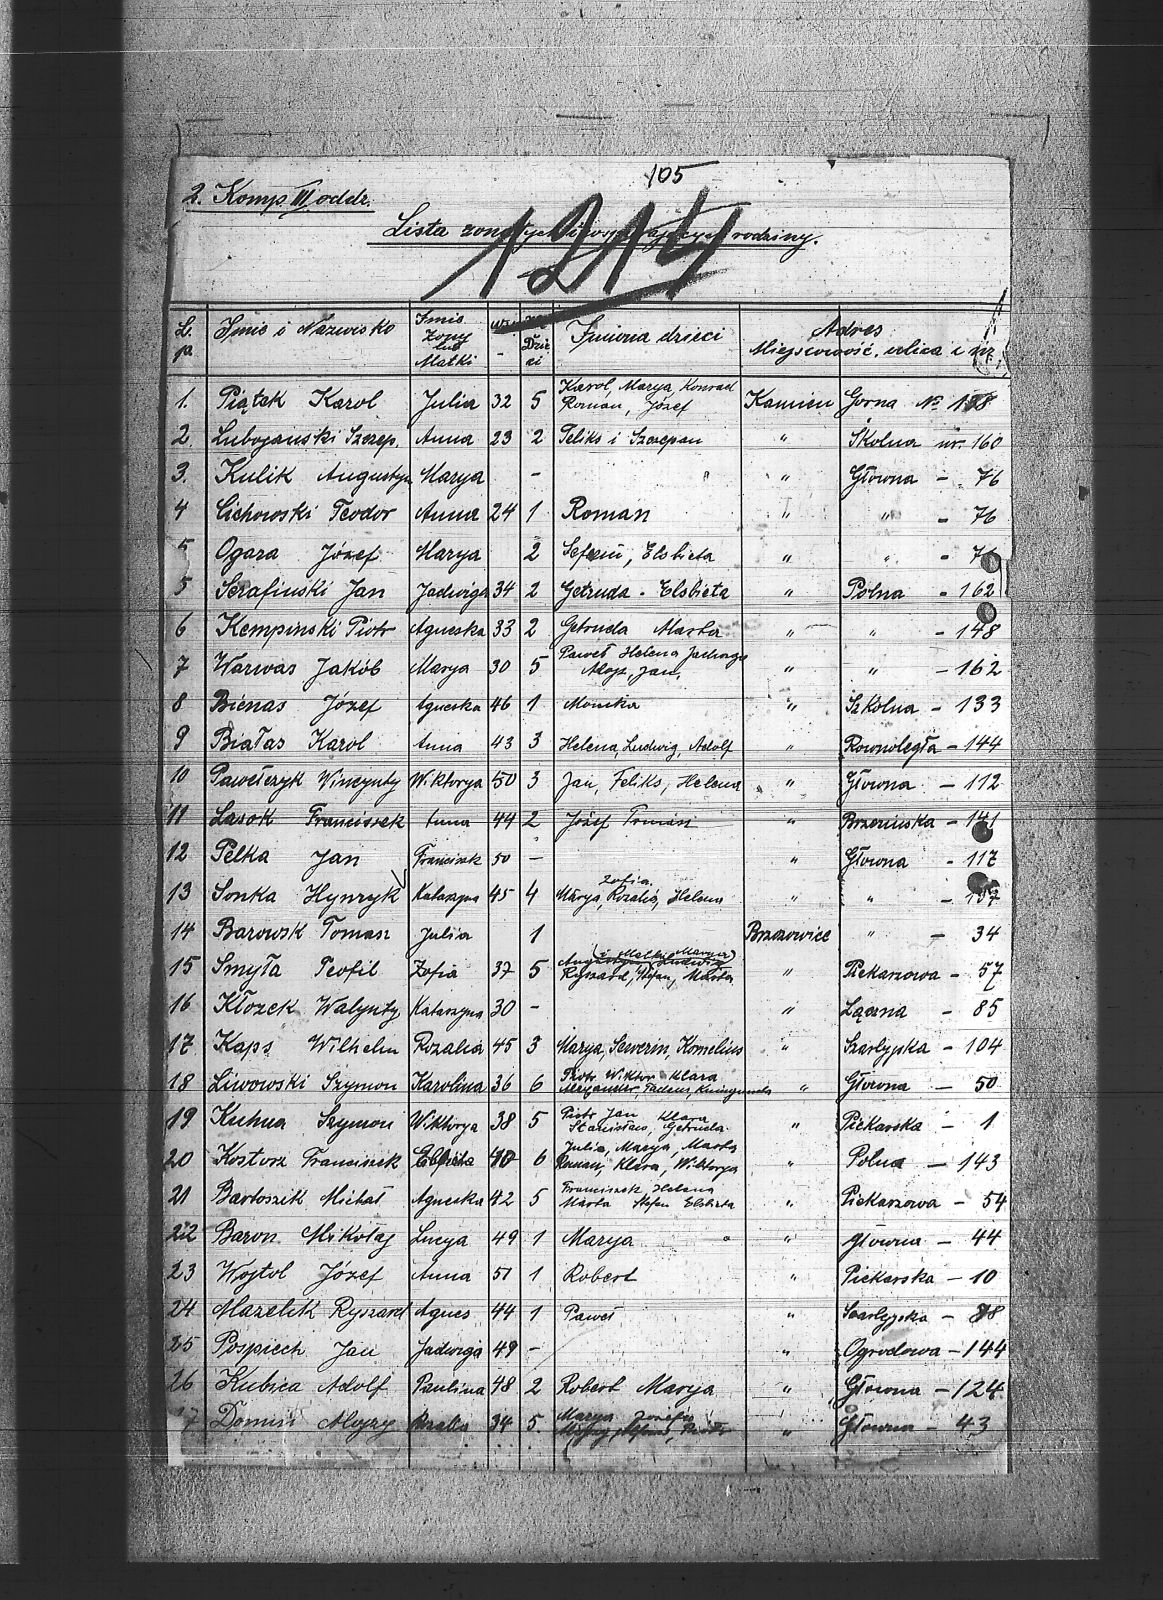 105
2. Komp. III oddz.
Lista rodziny.
1214
L. p. Imie i Nazwisko Imie Żony lub Matki Dzieci Imiona dzieci Adres Miejscowość, ulica i nr.
Karol, Marya, Konrad
1. Piątek Karol Julia 32 5 Roman, Józef Kamien Gorna No 158
2. Lubojanski Szczep. Anna 23 2 Feliks i Szczepan " Skolna nr. 160
3. Kulik Augustyn Marya - " Głowna - 76
4 Cichowski Teodor Anna 24 1 Roman " " - 76
5 Ogara Józef Marya 2 Stefan, Elsbieta " " - 76
5 Serafinski Jan Jadwiga 34 2 Getruda - Elsbieta " Polna - 162
6 Kempinski Piotr Agneska 33 2 Getruda Marta " " - 148
Paweł Helena Jadwiga
7 Warwas Jakób Marya 30 5 Alojz, Jan, " " - 162
8 Bienas Józef Agneska 46 1 Monika " Szkolna - 133
9 Białas Karol Anna 43 3 Helena, Ludwig, Adolf " Rownoległa - 144
10 Pawełczyk Wincynty Wiktorya 50 3 Jan, Feliks, Helena " Głowna - 112
11 Lasok Franciszek Anna 44 2 Józef Tomasz " Brzezinska - 141
12 Pelka Jan Franciszk 50 - " Głowna - 117
Zofia
13 Sonka Hynryk Katarzyna 45 4 Marya, Rozalia, Helena " " - 137
14 Barowsk Tomasz Julia 1 Brzozowice " - 34
(i Matka Marya)
Augustyn Ludwig
15 Smyła Teofil Zofia 37 5 Ryszard, Stefan, Marta " Piekarzowa - 57
16 Kłozek Walynty Katarzyna 30 - " Łączna - 85
17 Kaps Wilhelm Rozalia 45 3 Marya, Sewerin, Kornelius " Szarlyjska - 104
Piotr Wiktor Klara
18 Liwowski Szymon Karolina 36 6 Alexander, Tadeus, Kunigunda " Głowna - 50
Piotr Jan Klara
19 Kuhna Szymon Wiktorya 38 5 Stanisław, Getruda " Piekarska - 1
Julia, Marya, Marta
20 Kostorz Franciszek Elbieta 40 6 Roman, Klara, Wiktorya " Polna - 143
Franciszek Helena
21 Bartoszik Michał Agneska 42 5 Marta Stefan Elsbieta " Piekarzowa - 54
22 Baron Mikołaj Lucya 49 1 Marya " Głowna - 44
23 Wojtol Józef Anna 51 1 Robert " Piekarska - 10
24 Mazelik Ryszard Agnes 44 1 Paweł " Szarlyjska - 38
25 Pospiech Jan Jadwiga 49 - " Ogrodowa - 144
26 Kubica Adolf Paulina 48 2 Robert Marya " Głowna - 124
Marya Jozefa
27 Domin Alojzy Rozalia 34 5. Piotr " Głowna - 43